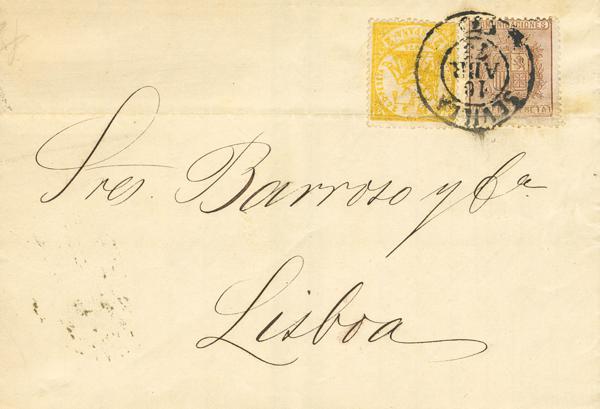 COMUNICACIONES
SEVILLA
16
ABR
Sres. Barroso y Cª
Lisboa